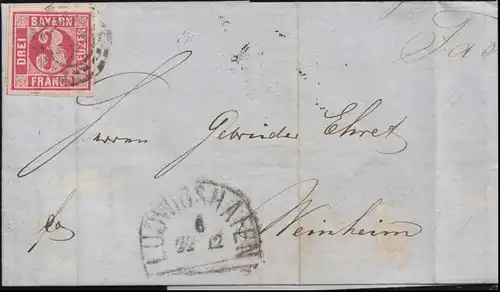 BAYERN
DREI
3
KREUZER
FRANCO
Herrn Gebrüder Ehret
Weinheim
LUDWIGSHAFEN
6
12